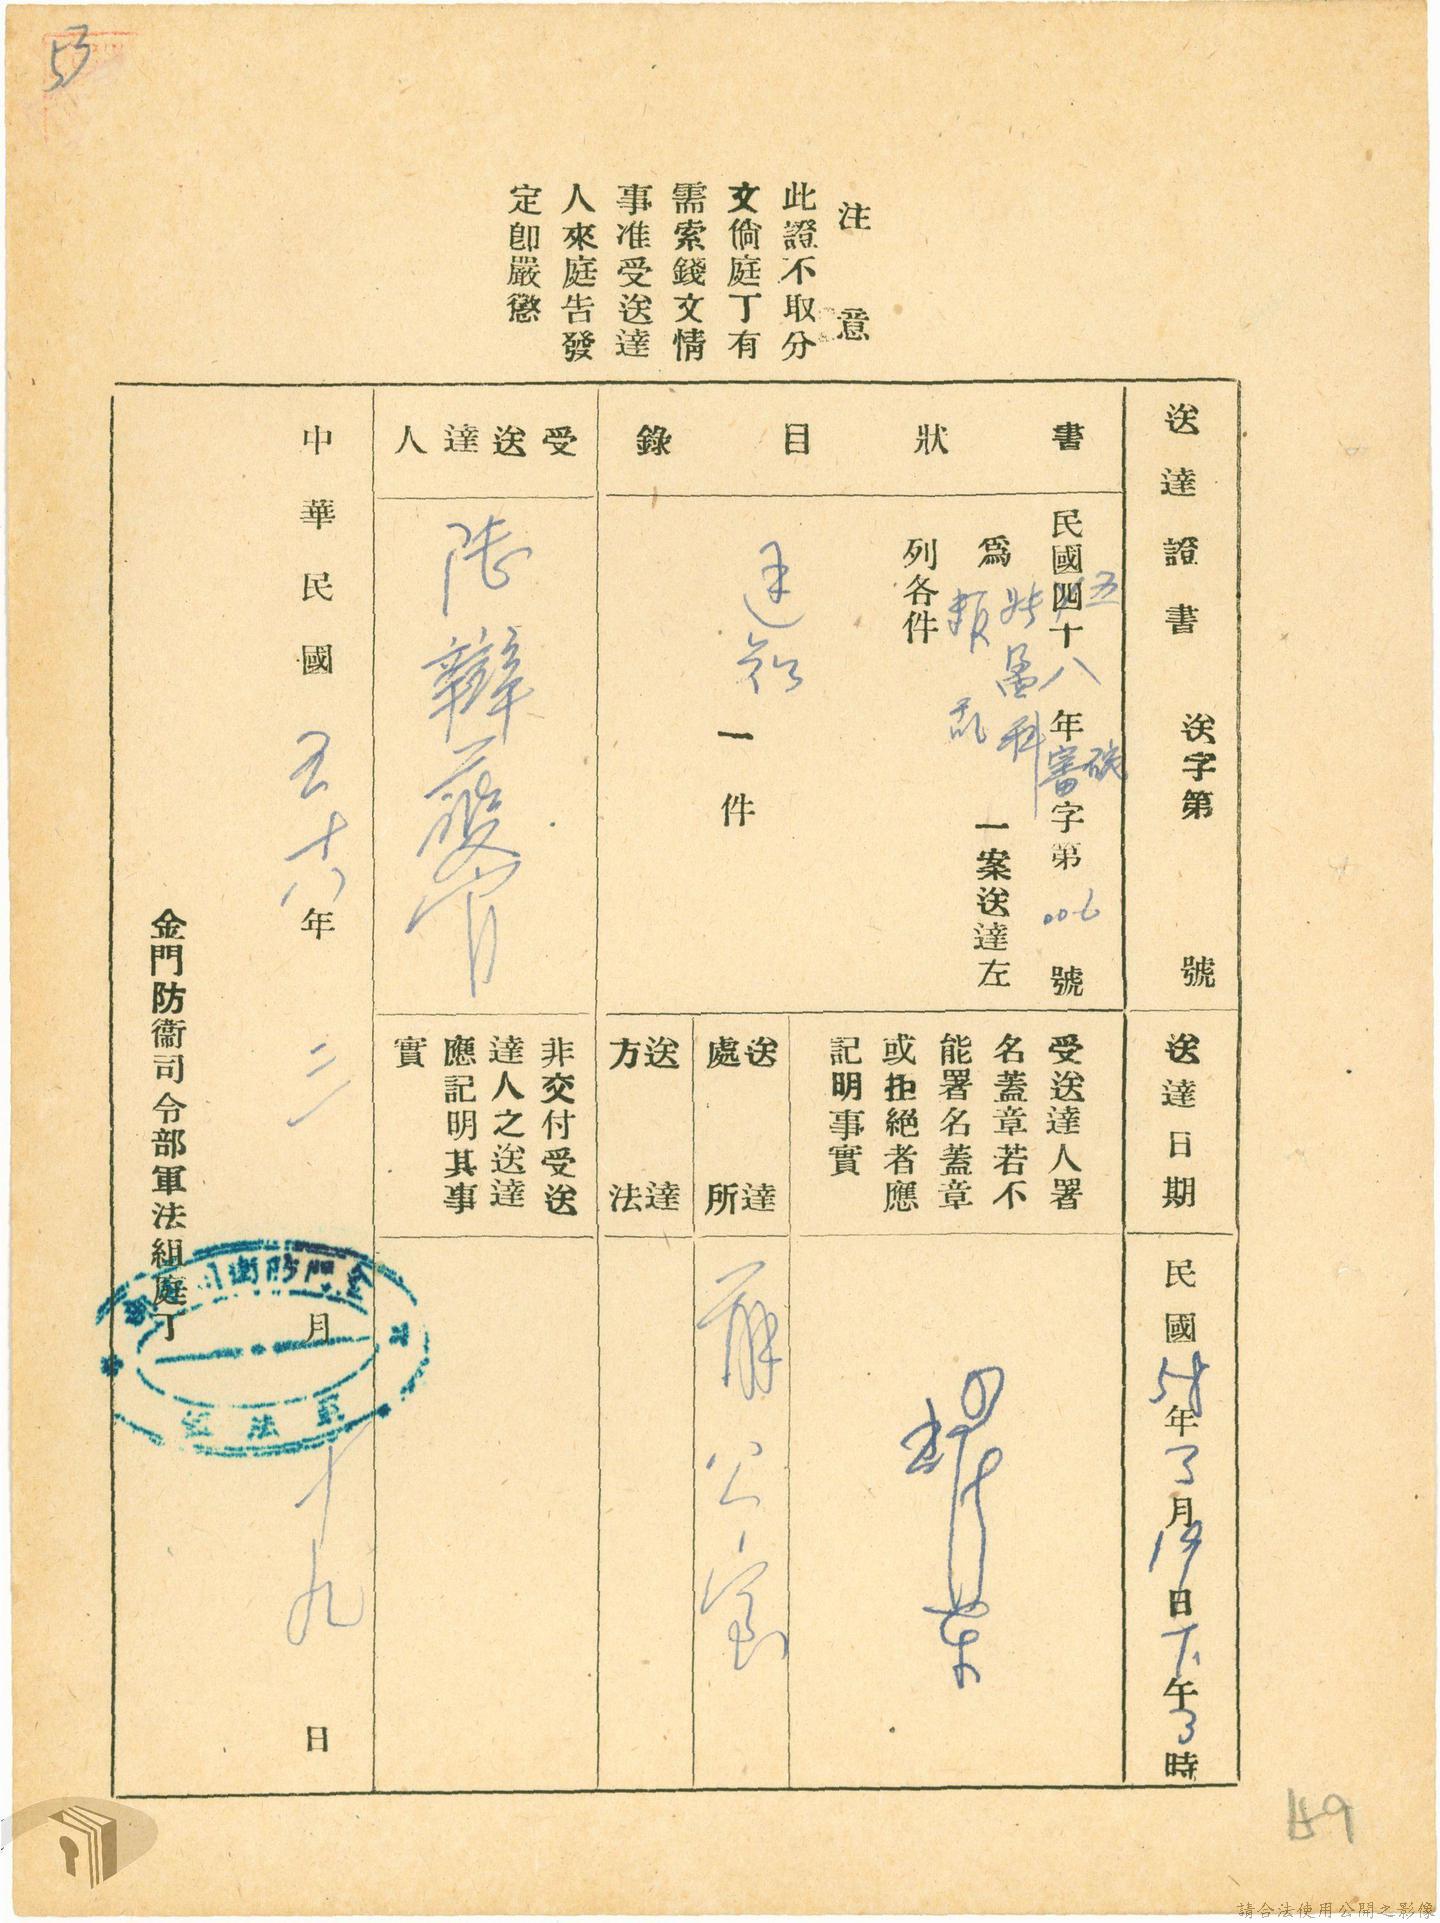 53
注意
此證不取分
文倘庭丁有
需索錢文情
事准受送達
人來庭告發
定卽嚴懲
送達證書 送字第 號
送達日期 民國58年3月19日下午3時
書狀目錄
民國五十八年審字第006號
為叛乱一案送達左
列各件
一件
受送達人署
名蓋章若不
能署名蓋章
或拒絕者應
記明事實
送達處所
公室
送達方法
受送達人
陸
官
非交付受送
達人之送達
應記明其事
實
中華民國五十八年三月十九日
金門防衞司令部軍法組庭丁
金門防衛司
軍法組
149
請合法使用公開之影像